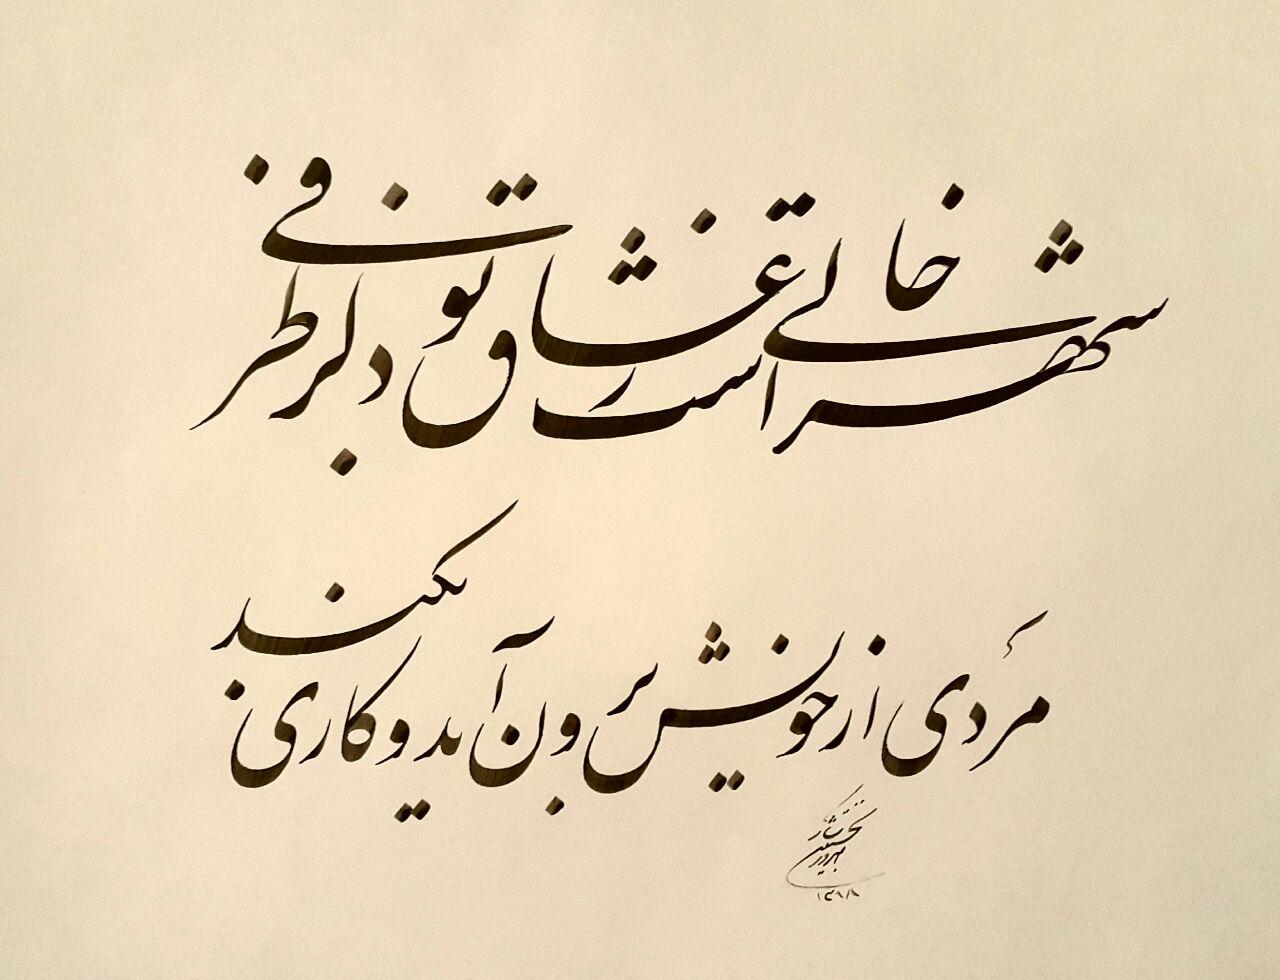 شهر خالی است ز عشاق بود کز طرفی
مردی از خویش برون آید و کاری بکند
۱۳۹۸